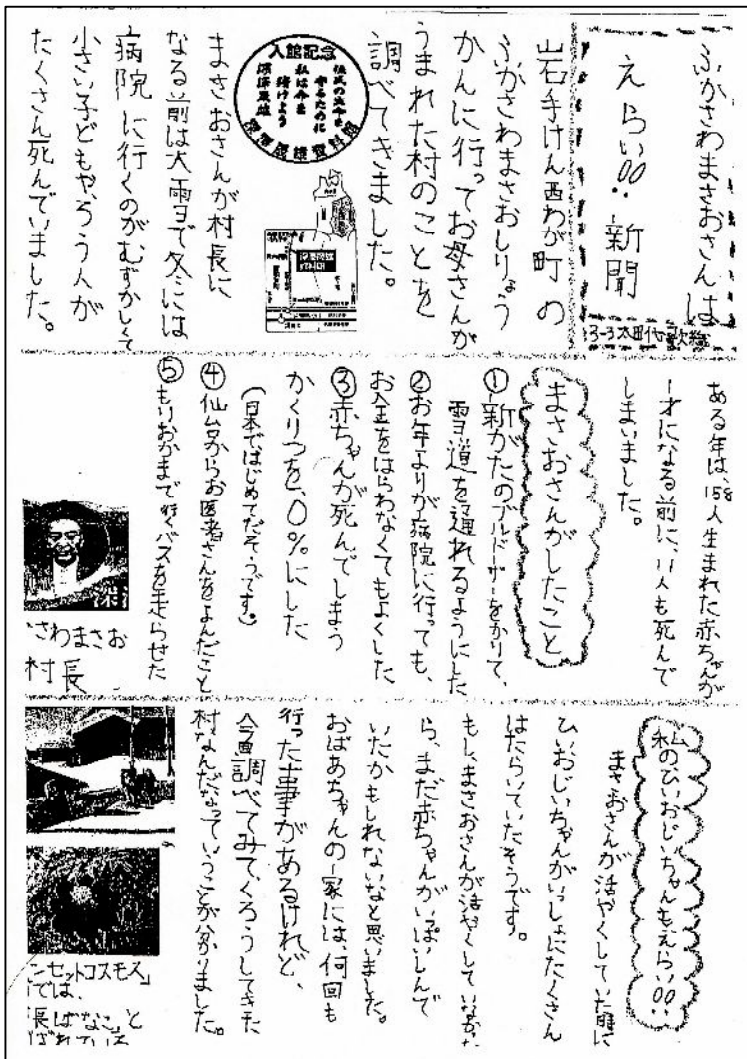 ふかさわまさおさんは
えらい!! 新聞
3-3 太田代
岩手けん西わが町の
ふかさわまさおしりょう
かんに行ってお母さんが
うまれた村のことを
調べてきました。
入館記念
住民の生命を
守るために
私は命を
賭けよう
深沢晟雄
深沢晟雄資料館
まさおさんが村長に
なる前は大雪で冬には
病院に行くのがむずかしくて
小さい子どもやろう人が
たくさん死んでいました。
ある年は、158人生まれた赤ちゃんが
1才になる前に、11人も死んで
しまいました。
まさおさんがしたこと
①新がたのブルドーザーをかりて、
雪道を通れるようにした
②お年よりが病院に行っても、
お金をはらわなくてもよくした
③赤ちゃんが死んでしまう
かくりつを、0%にした
(日本ではじめてだそうです。)
④仙台からお医者さんをよんだこと
⑤もりおかまで行くバスを走らせた
さわまさお
村長
私のひいおじいちゃんもえらい!!
まさおさんが活やくしていた時に
ひいおじいちゃんがいっしょにたくさん
はたらいていたそうです。
もし、まさおさんが活やくしていなかった
ら、まだ赤ちゃんがいっぱいしんで
いたかもしれないなと思いました。
おばあちゃんの家には、何回も
行った事があるけれど、
今回調べてみて、くろうしてきた
村なんだなっていうことが分かりました。
ンセットコスモス」
では、
長ばなことと
ばれている